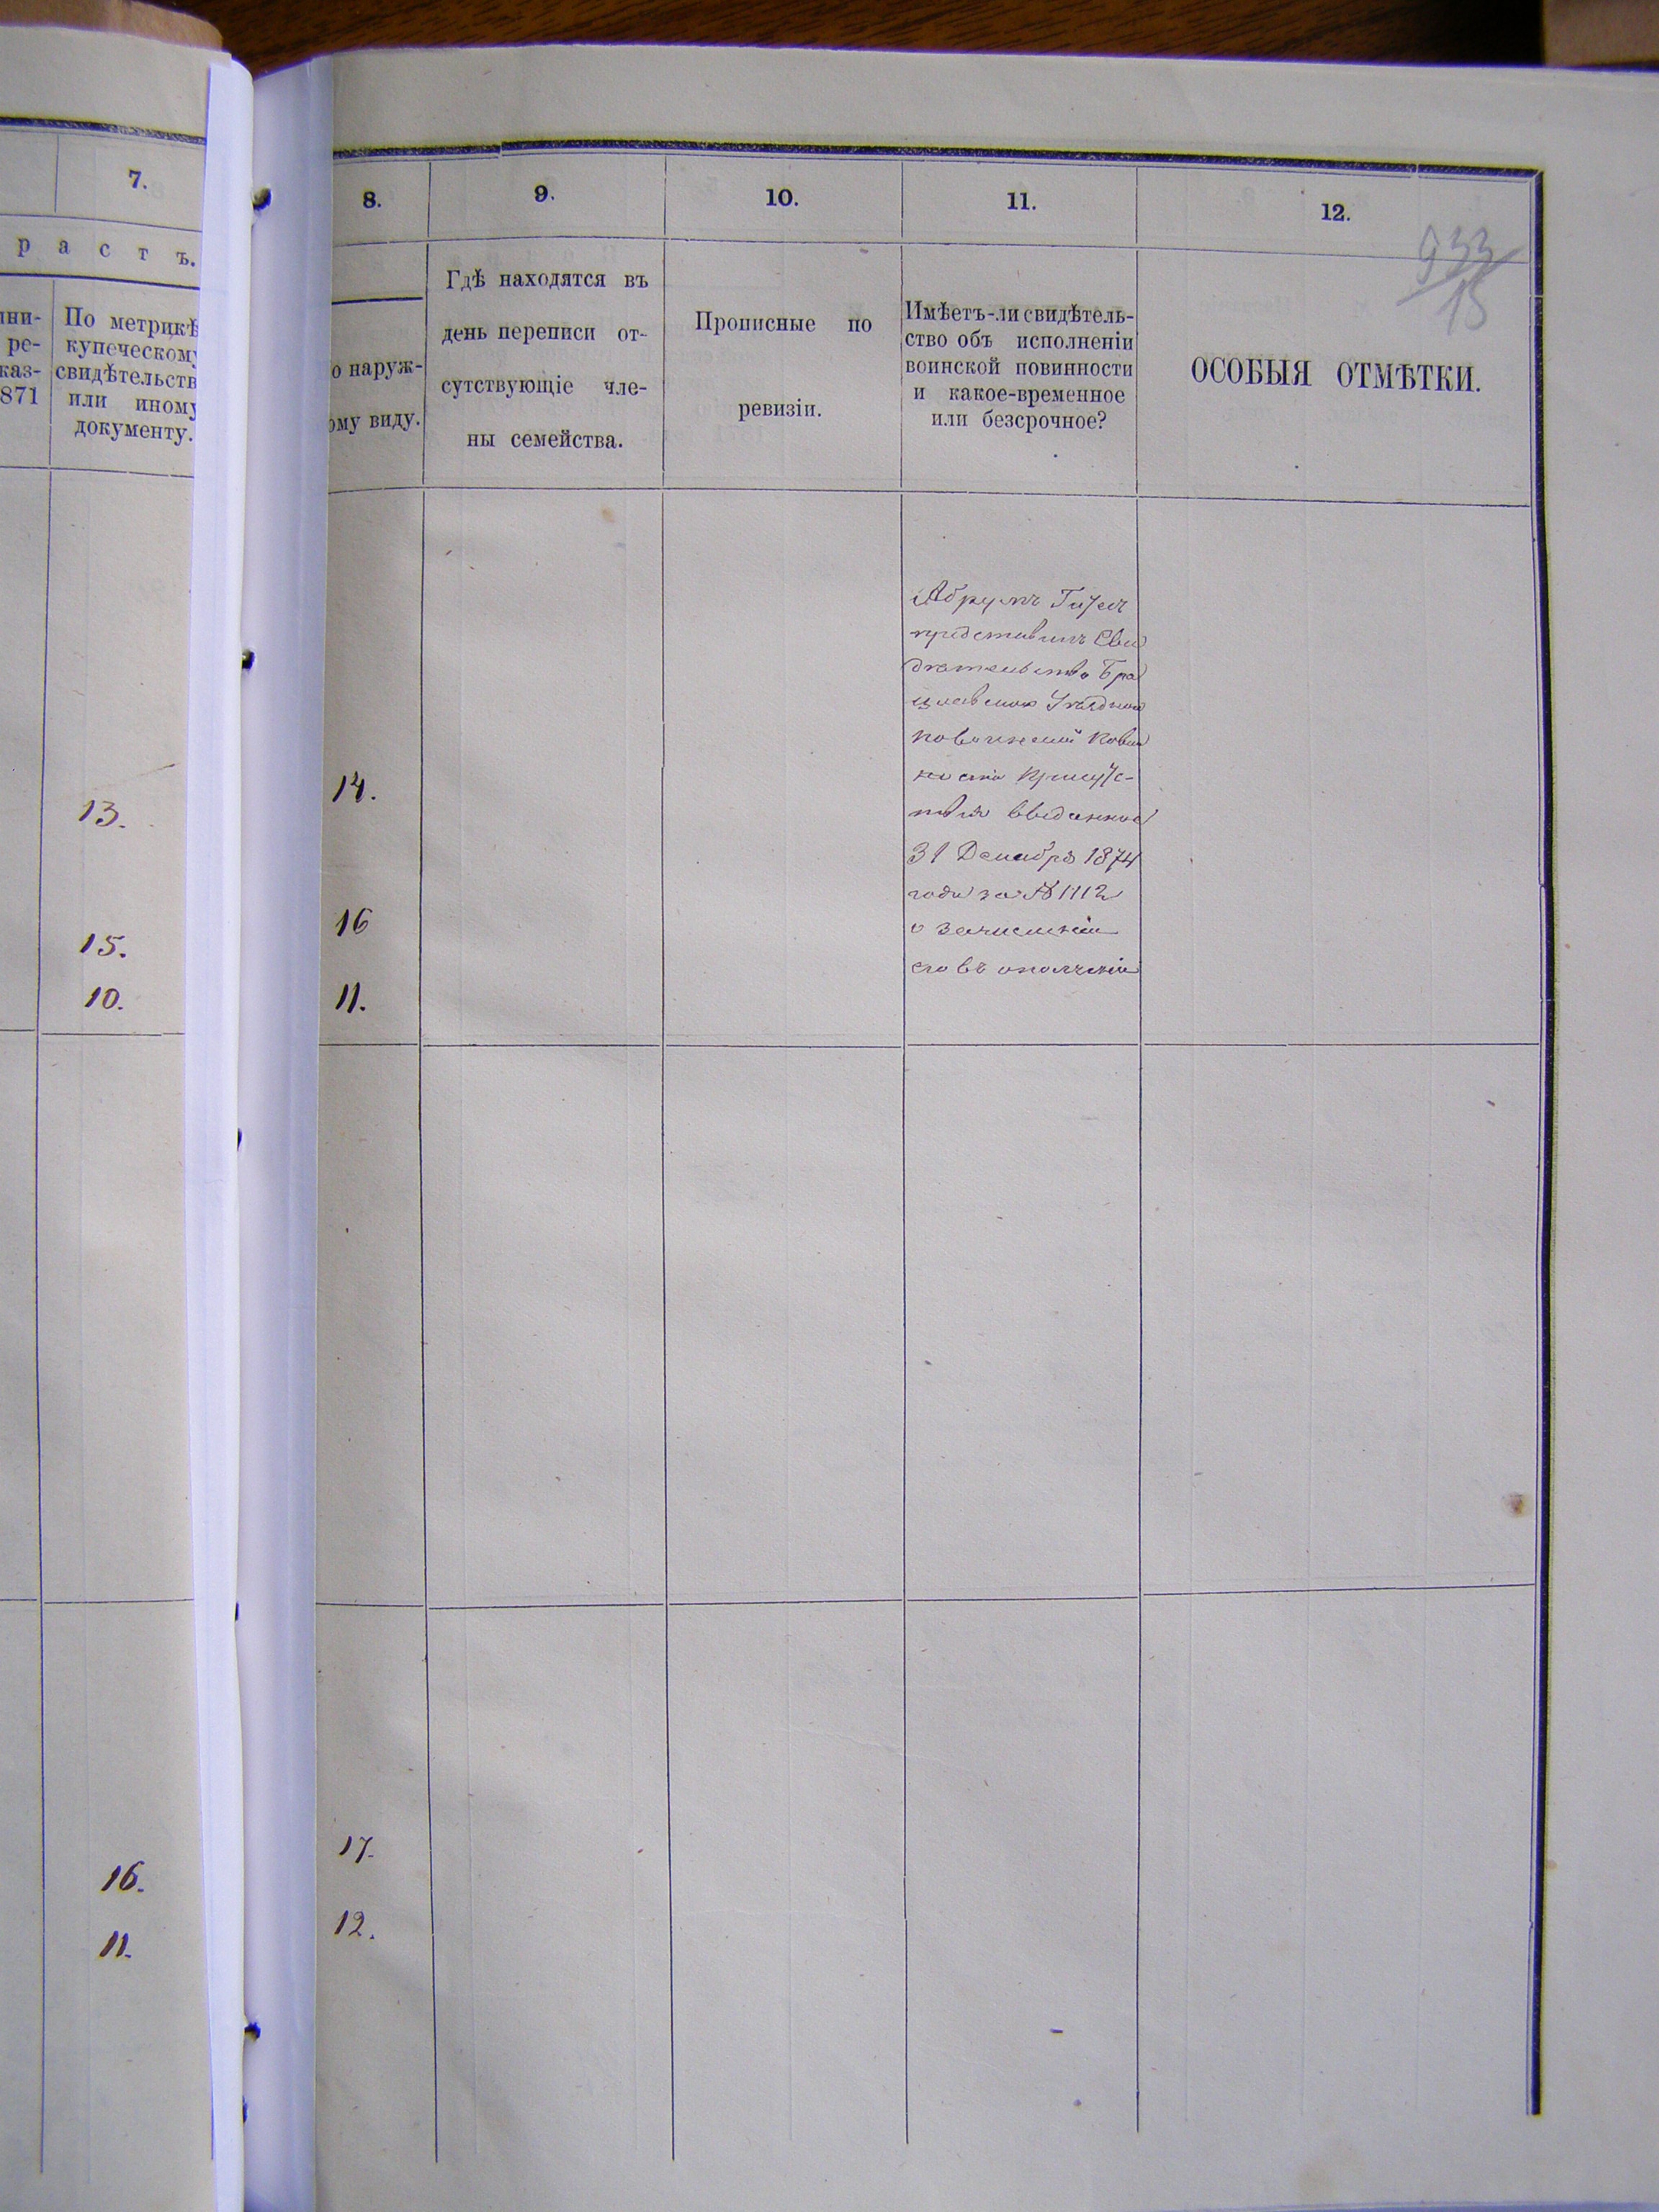 7.
р а с т ъ.
ни-
ре-
каз-
871
По метрикѣ
купеческому
свидѣтельств
или иному
документу.
13.
15.
10.
16.
11.
8.
9.
10.
11.
12.
933
15
о наруж-
ому виду.
Гдѣ находятся въ
день переписи от-
сутствующіе чле-
ны семейства.
Прописные по
ревизіи.
Имѣетъ-ли свидѣтель-
ство объ исполненіи
воинской повинности
и какое-временное
или безсрочное?
ОСОБЫЯ ОТМѢТКИ.
14.
16
11.
17.
12.
Абрумъ
представилъ Сви
дѣтельство Бра
цлавскаго Уѣзднаго
по воинской повин
ности Присут-
ствія выданное
31 Декабря 1874
года за № 1112
о зачисленіи
его въ ополченіе